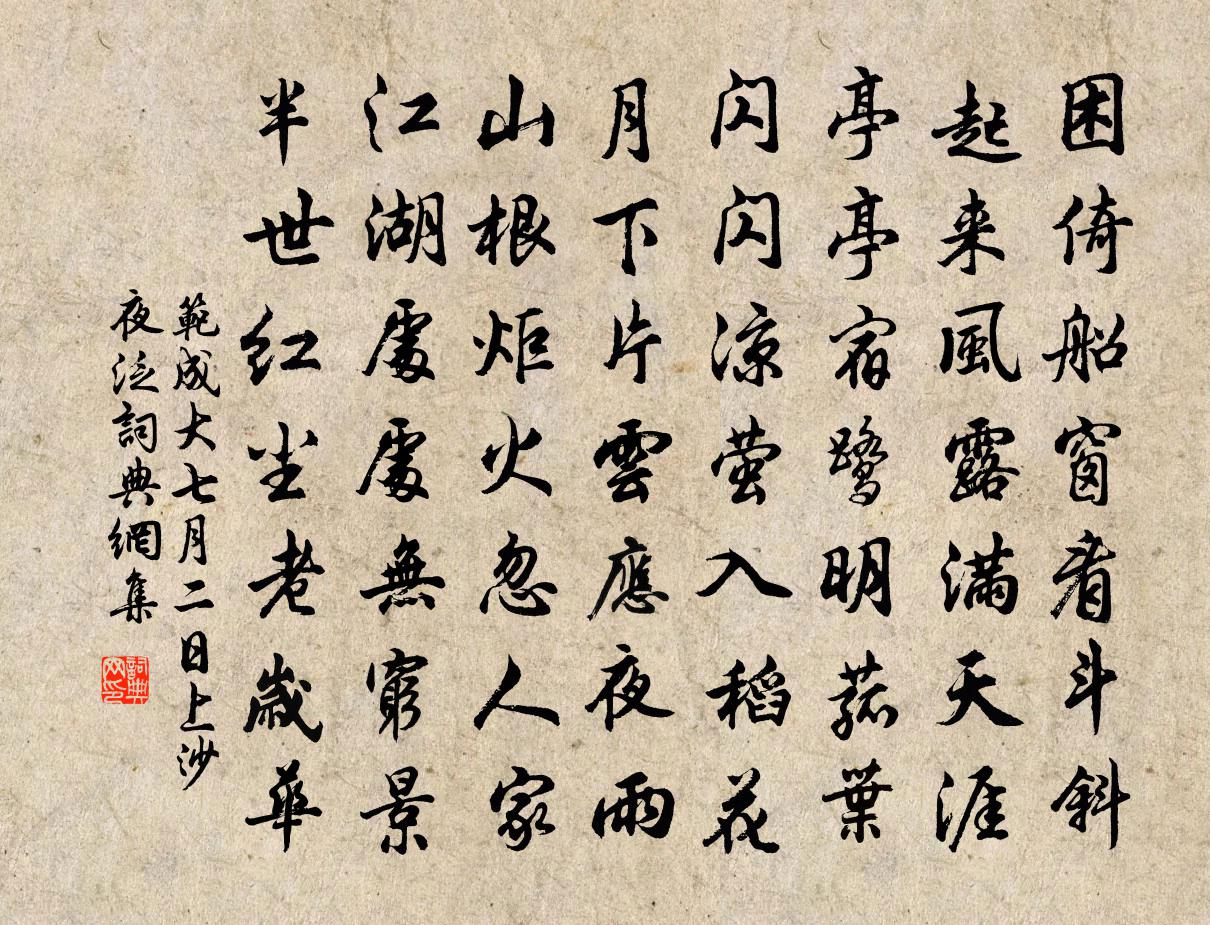 困倚船窗看斗斜
起来風露满天涯
亭亭宿鹭明菰葉
闪闪涼萤入稻花
月下片雲應夜雨
山根炬火忽人家
江湖處處無窮景
半世红尘老歲華
範成大七月二日上沙
夜泛詞典網集
詞典网印